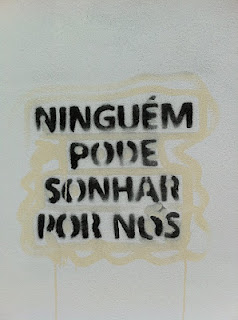 NINGUÉM
PODE
SONHAR
POR NÓS